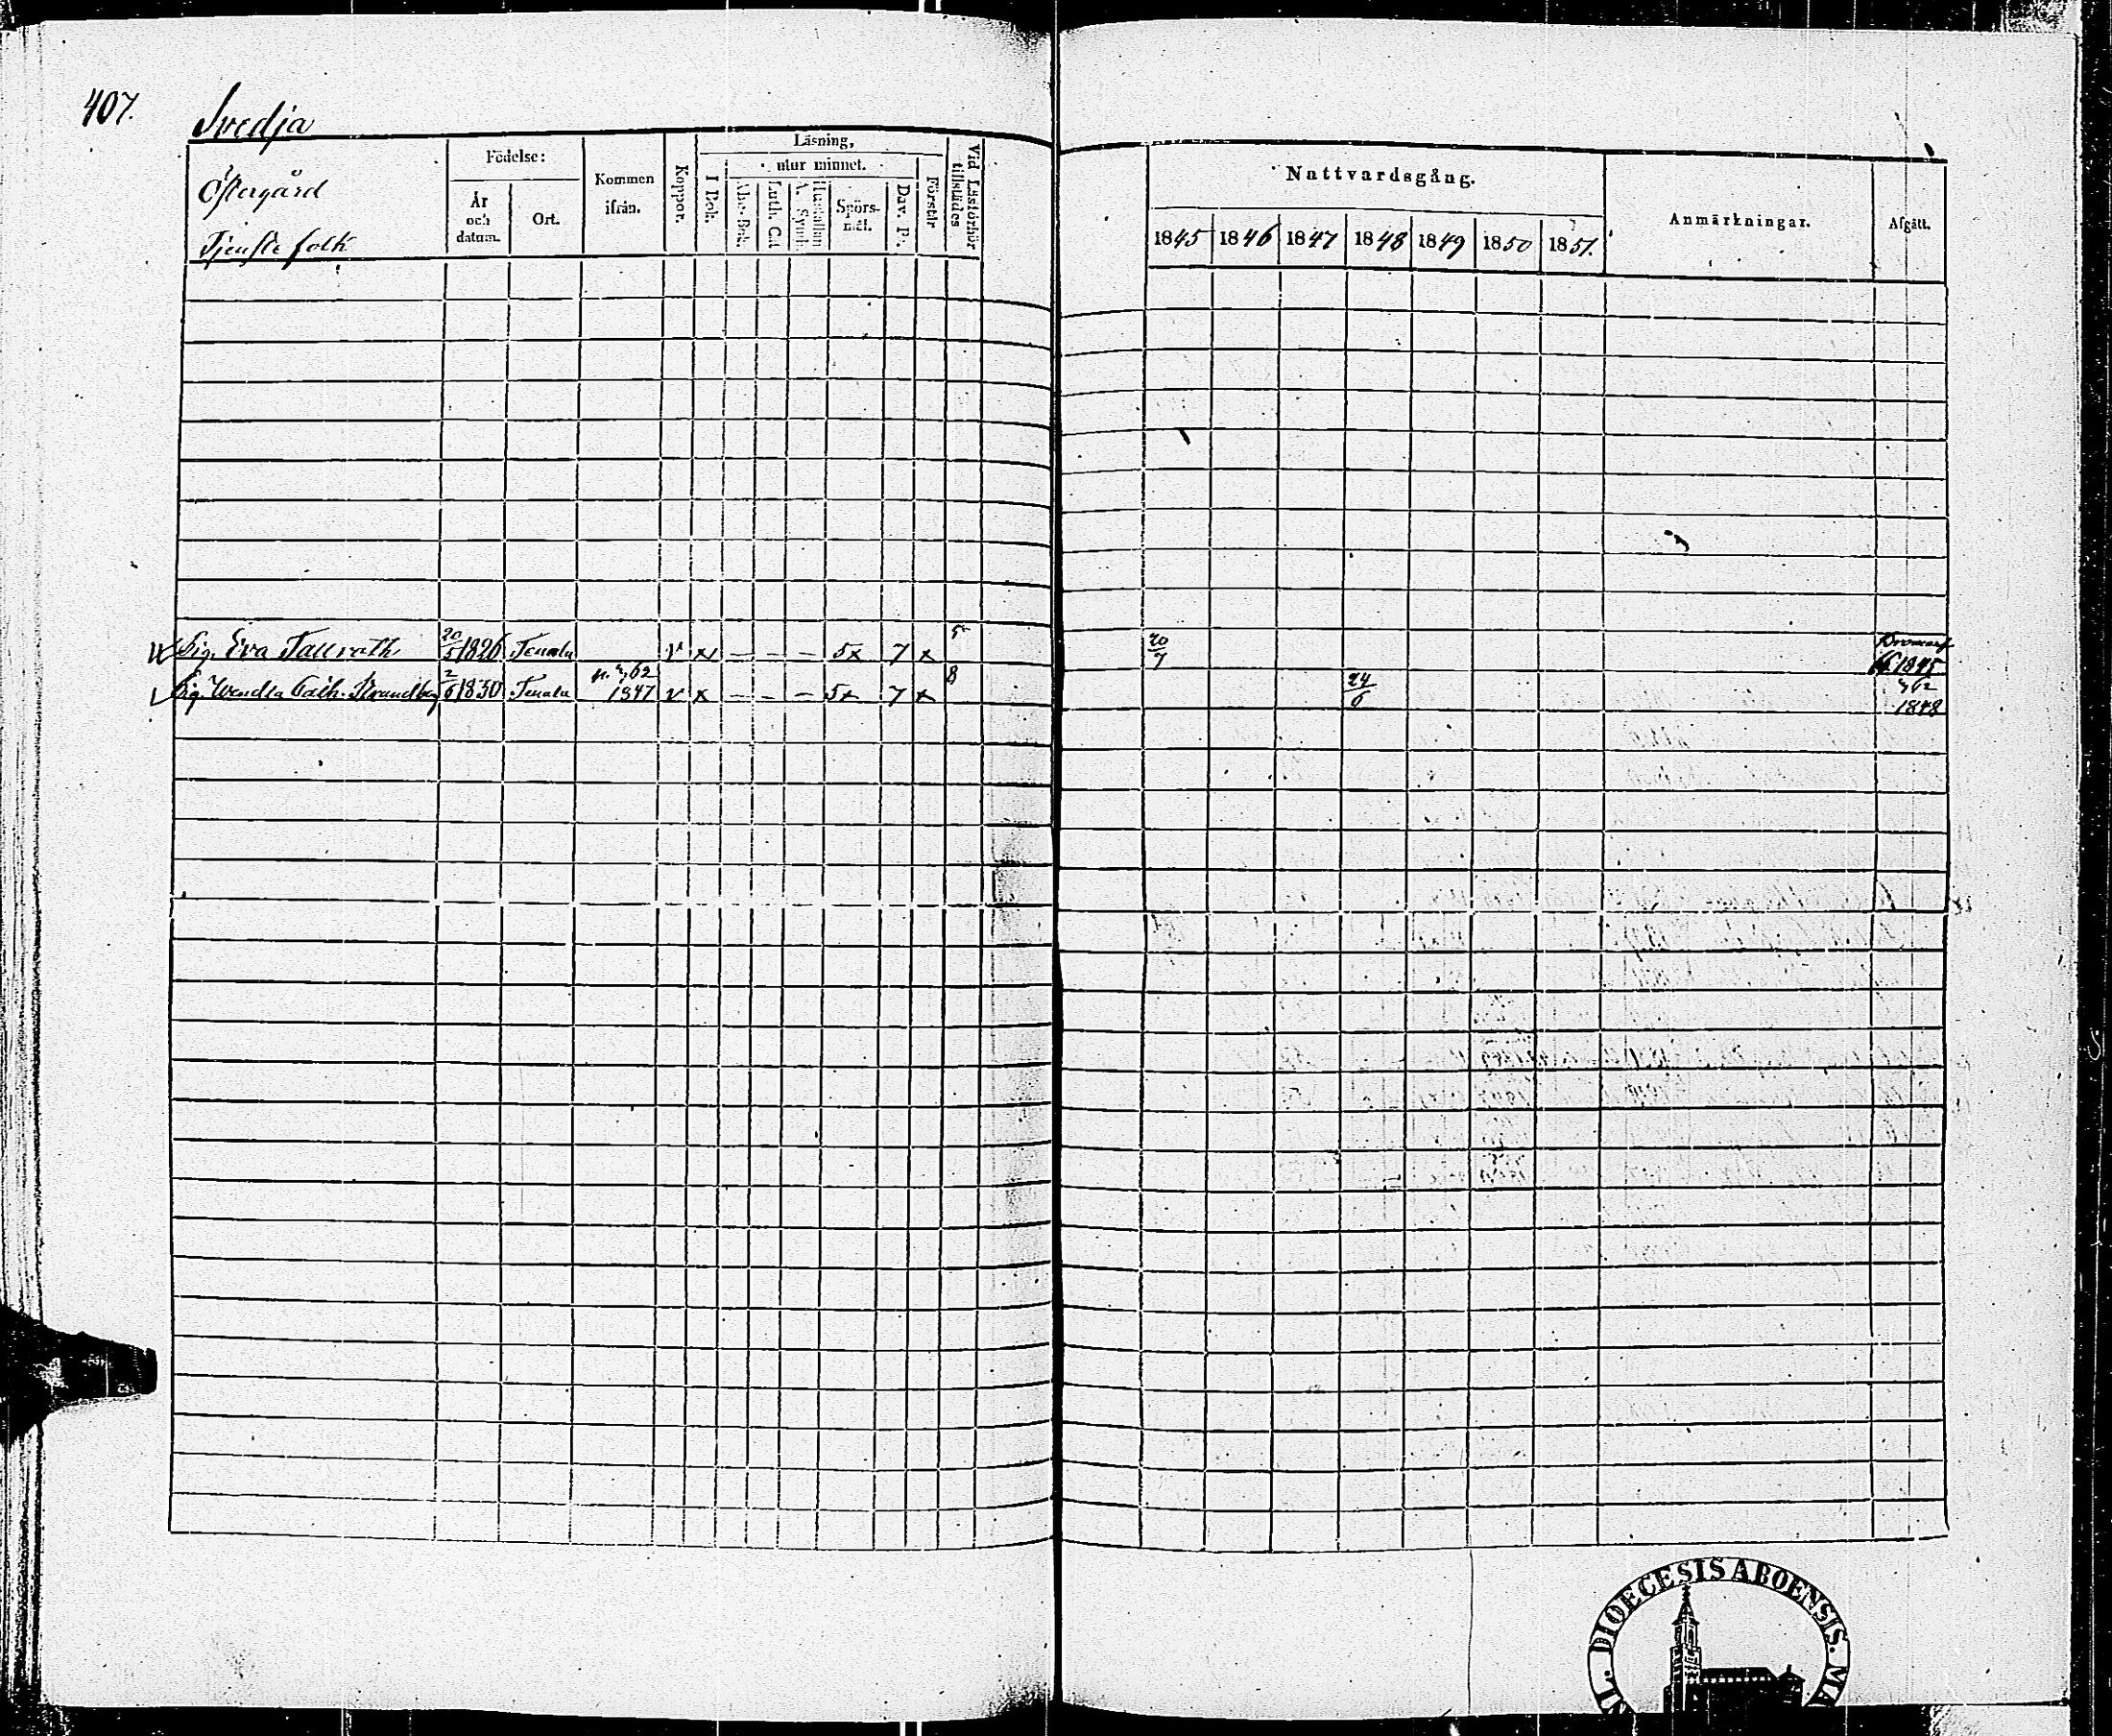 407.
Svedja
Östergård
Tjenste folk
Födelse:
År och datum.
Ort.
Kommen ifrån.
Koppor.
Läsning,
I Bok.
utur minnet.
Abc-Bok.
Luth. Cat.
Hustaflan A. Symb.
Spörs-mål.
Dav. Ps.
Förstår
Vid Läsförhör tillstädes
Nattvardsgång.
1845 1846 1847 1848 1849 1850 1851.
Anmärkningar.
Afgått.
Pig. Eva Tallroth 20/5 1826 Tenala v x – – – 5x 7 x 5 20/7 Bromarf 1845
Pig. Wendla Cath. Strandberg 2/6 1830 Tenala 62 1847 v x – – – 5x 7 x 8 24/6 62 1848
DIOECESIS ABOENSIS.